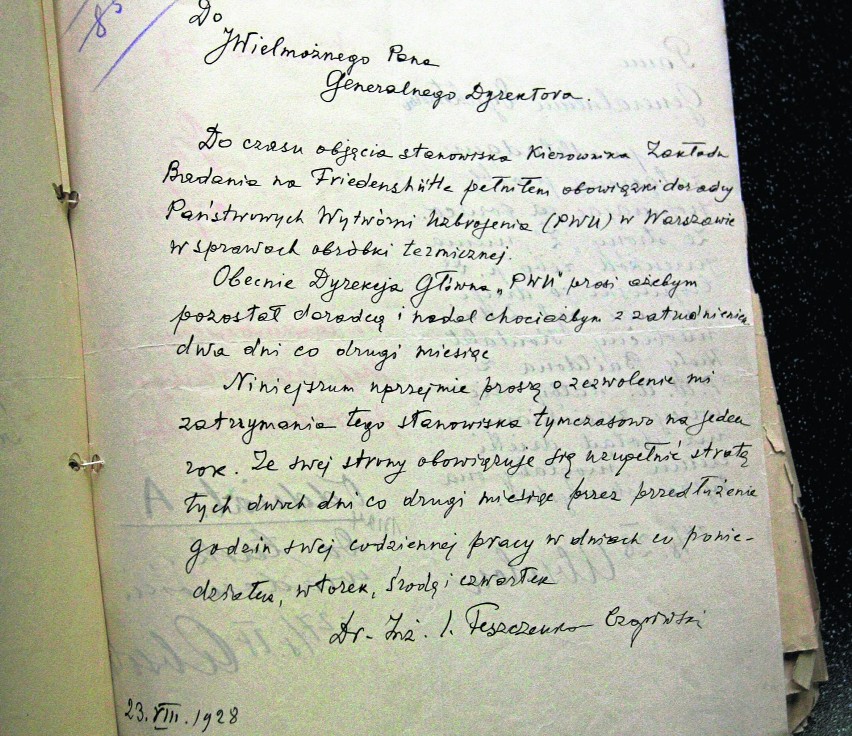 85
Do
JWielmożnego Pana
Generalnego Dyrektora.
Do czasu objęcia stanowiska Kierownika Zakładu
Badania na Friedenshütte pełniłem obowiązki doradcy
Państwowych Wytwórni Uzbrojenia (PWU) w Warszawie
w sprawach obróbki termicznej.
Obecnie Dyrekcja Główna „PWU" prosi ażebym
pozostał doradcą i nadal chociażbym z zatrudnieniem
dwa dni co drugi miesiąc
Niniejszym uprzejmie proszę o zezwolenie mi
zatrzymania tego stanowiska tymczasowo na jeden
rok. Ze swej strony obowiązuję się uzupełnić stratę
tych dwuch dni co drugi miesiąc przez przedłużenie
godzin swej codziennej pracy w dniach co ponie-
działek, wtorek, środę i czwartek
Dr. Inż. I. Feszczenko Czopiwski
23. VIII. 1928